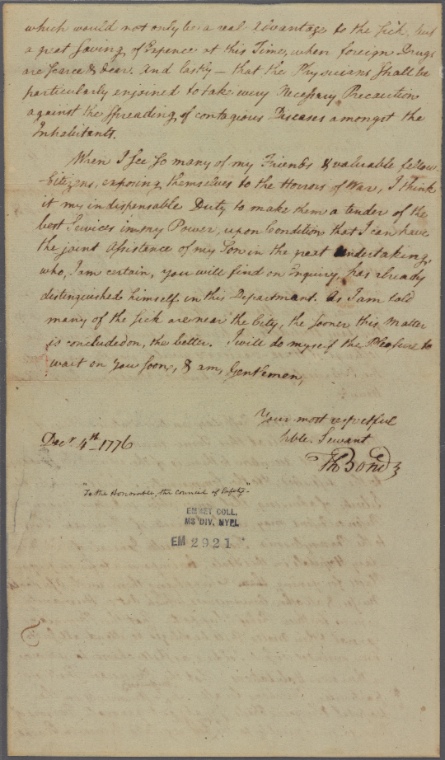 which would not only be a real Advantage to the Sick, but
a great Saving of Expence at this Time, when foreign Drugs
are scarce & dear. And lastly — that the Physicians Shall be
particularly enjoined to take every Necessary Precaution
against the Spreading of contagious Diseases amongst the
Inhabitants.
When I See So many of my Friends & valuable fellow
-Citizens, exposing themselves to the Horrors of War, I think
it my indispensable Duty to make them a tender of the
best Services in my Power, upon Condition that I can have
the joint Assistance of my Son in the great Undertaking,
who, I am certain, you will find on Enquiry, has already
distinguished himself in this Department. As I am told
many of the Sick are near the City, the sooner this Matter
is concluded on, the better. I will do myself the Pleasure to
wait on you soon, & am, Gentlemen,
Your most respectful
hble. Servant
Th Bond
Decr 4th 1776
"To the Honourable, the Council of Safety"
EMMET COLL.
MS DIV, NYPL
EM 2921